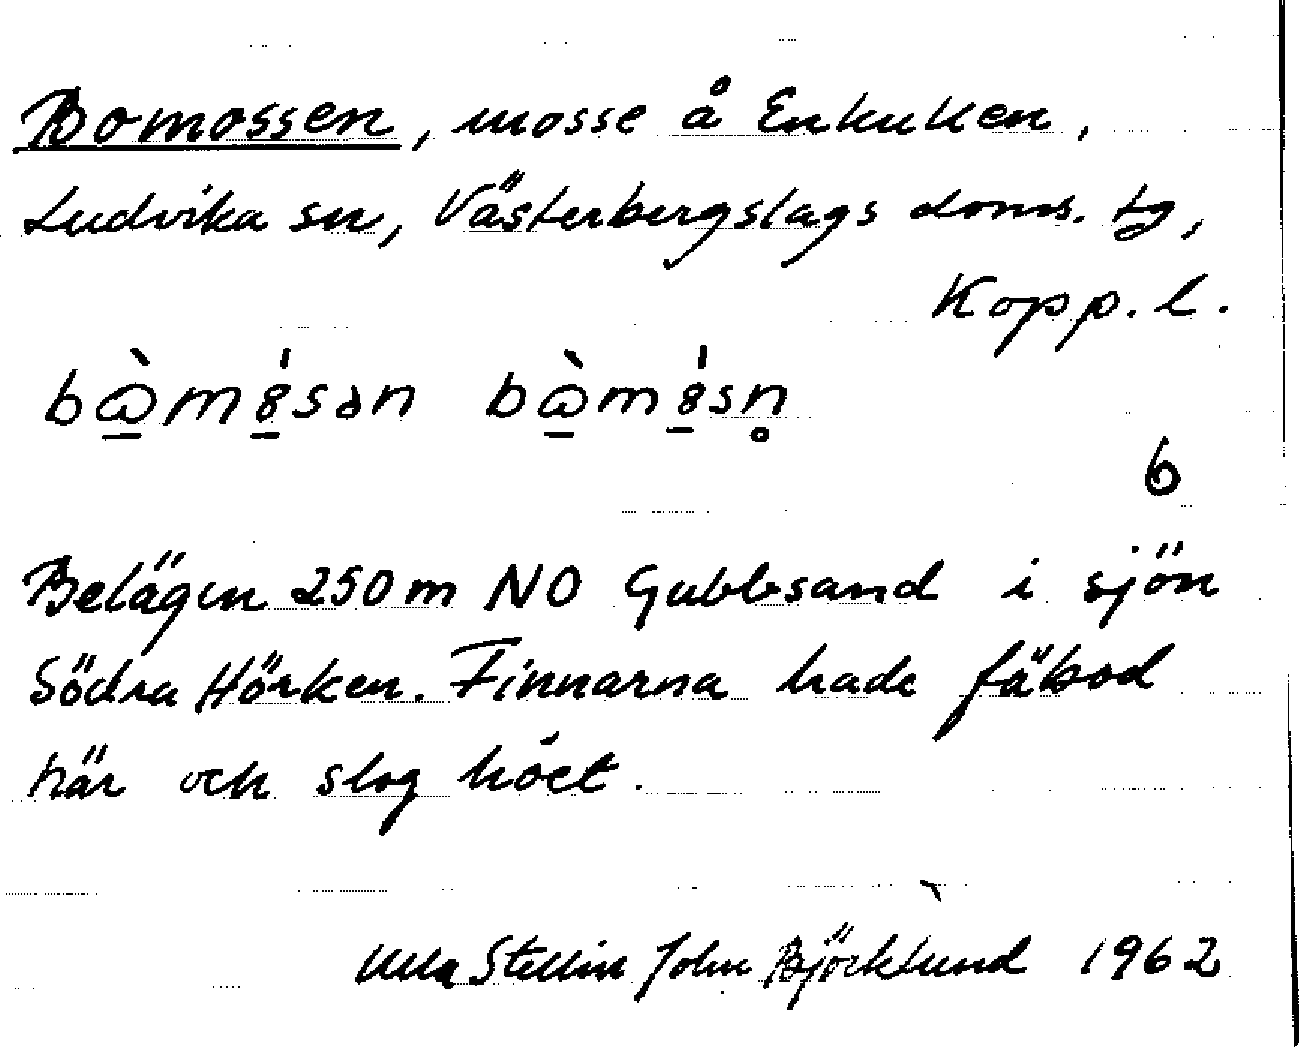 Bomossen, mosse å Enkullen,
Ludvika sn, Västerbergslags doms. tg,
Kopp. l.
6
Belägen 250 m NO Gubbsand i sjön
Södra Hörken. Finnarna hade fäbod
här och slog höet.
Ulla Stellin John Björklund 1962